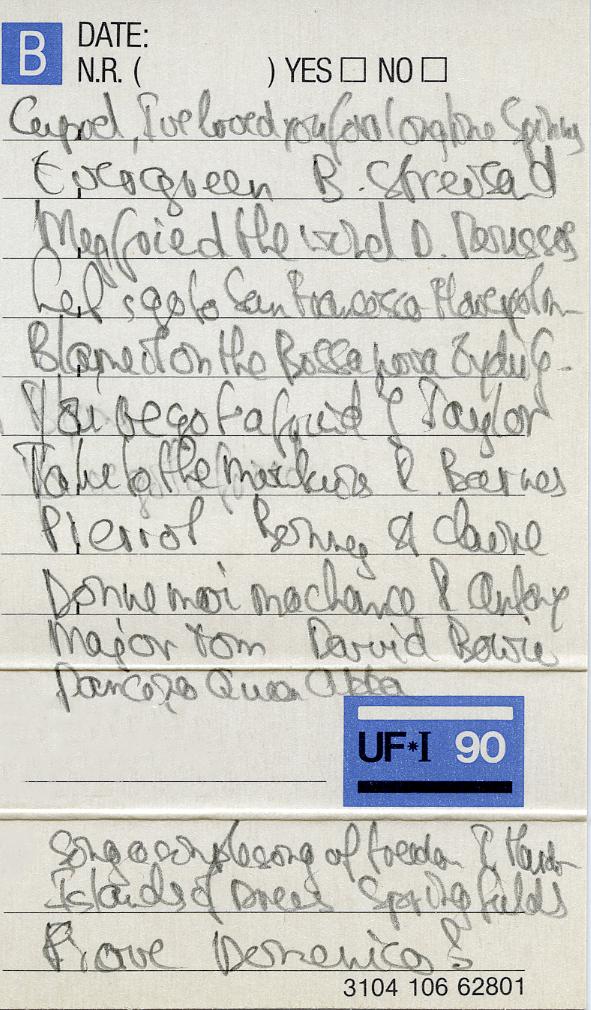 B DATE:
N.R. ( ) YES □ NO □
Cupod, I've loved you for a long time Spinners
Evergreen B. Streisad
the D. Roussos
Let's go to San Francisco Flowerpotm
Blame it on the Bossa nova Eydie G.
You've got a friend J Taylor
Take to the R. Barnes
Pierrot Bonney & claire
Donne moi ma chance R Antony
Major Tom David Bowie
Dancing Queen Abba
UF*I 90
Sing a simple song of freedom T Hardin
Islands of Dreams Springfields
Piove Domenico
3104 106 62801